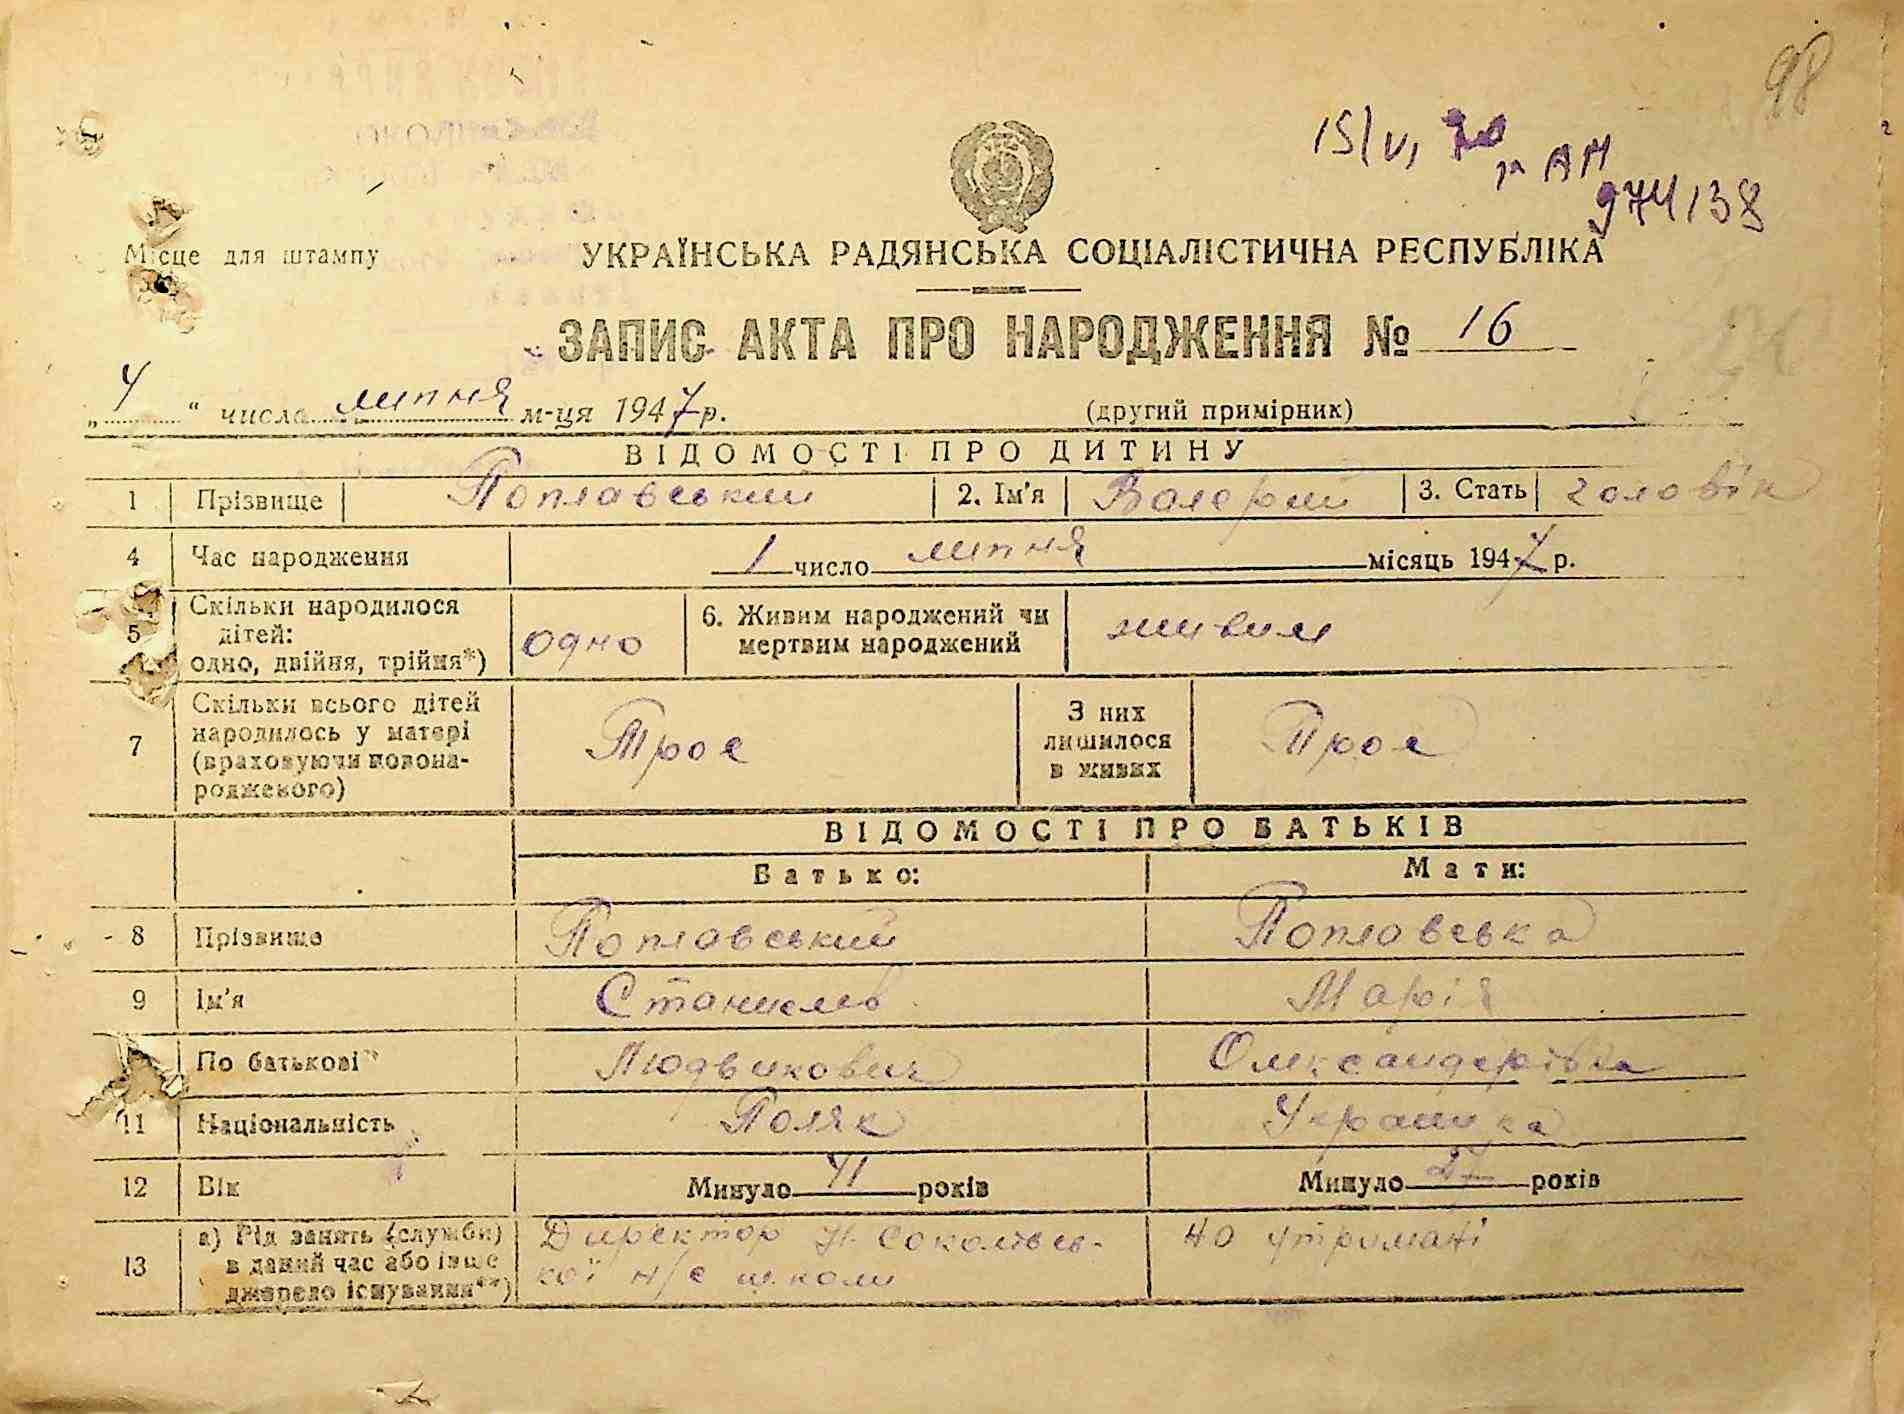 98
15/VI 70
р АМ
974138
Місце для штампу
УКРАЇНСЬКА РАДЯНСЬКА СОЦІАЛІСТИЧНА РЕСПУБЛІКА
ЗАПИС АКТА ПРО НАРОДЖЕННЯ № 16
„ 4 “ числа липня м-ця 1947 р. (другий примірник)
ВІДОМОСТІ ПРО ДИТИНУ
1 Прізвище Поплавський 2. Ім'я Валерій 3. Стать чоловік
4 Час народження 1 число липня місяць 1947 р.
5 Скільки народилося дітей: одно, двійня, трійня*) одно 6. Живим народжений чи мертвим народжений живим
7 Скільки всього дітей народилось у матері (враховуючи новонародженого) Троє З них лишилося в живих Троє
ВІДОМОСТІ ПРО БАТЬКІВ
Батько: Мати:
8 Прізвище Поплавський Поплавська
9 Ім'я Станислав Марія
По батькові Людвикович Олександрівна
11 Національність Поляк Украинка
12 Вік Минуло 41 років Минуло 27 років
13 а) Рід занять (служби) в даний час або інше джерело існування**) Директор Н. Соколівської н/с школи на утримані